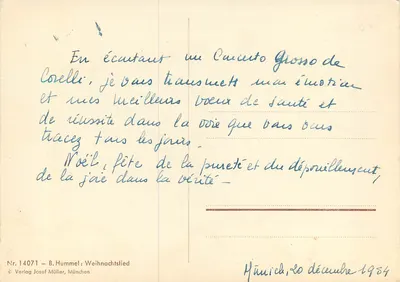 En écoutant un Concerto Grosso de
Corelli, je vous transmets mon émotion
et mes meilleurs vœux de santé et
de réussite dans la voie que vous vous
tracez tous les jours.
Noël, fête de la pureté et du dépouillement,
de la joie dans la vérité –
Nr. 14071 – B. Hummel: Weihnachtslied
© Verlag Josef Müller, München
Münich, 20 décembre 1984